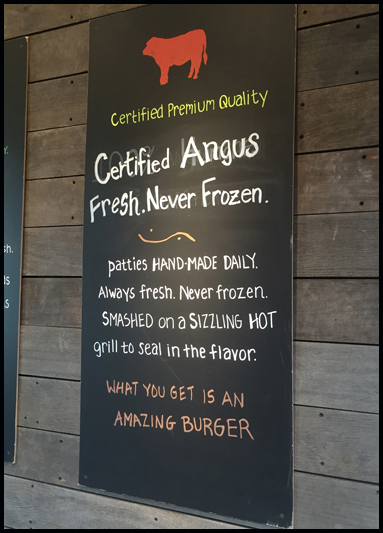 Certified Premium Quality
Certified Angus
Fresh. Never Frozen.
patties HAND-MADE DAILY.
Always fresh. Never frozen.
SMASHED on a SIZZLING HOT
grill to seal in the flavor.
WHAT YOU GET IS AN
AMAZING BURGER